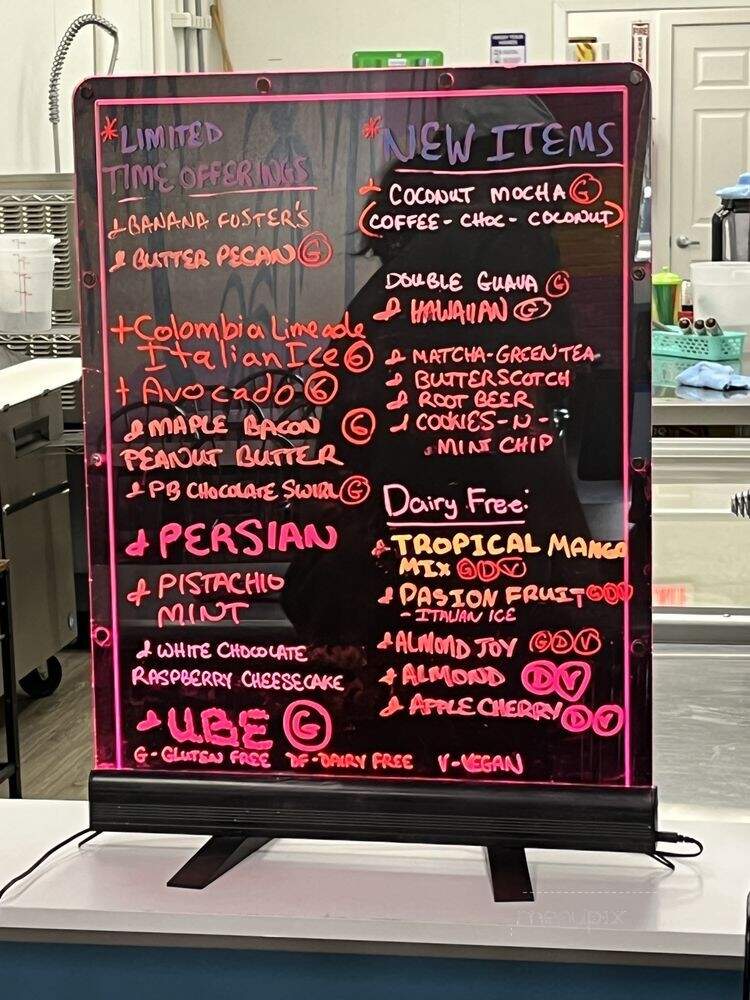 *LIMITED
TIME OFFERINGS
BANANA FUSTER'S
BUTTER PECAN G
+Colombia Limeade
Italian Ice G
+ Avocado G
MAPLE BACON G
PEANUT BUTTER
PB CHOCOLATE SWIRL G
PERSIAN
PISTACHIO
MINT
WHITE CHOCOLATE
RASPBERRY CHEESECAKE
UBE G
*NEW ITEMS
COCONUT MOCHA G
(COFFEE-CHOC-COCONUT)
DOUBLE GUAVA G
HAWAIIAN G
MATCHA-GREEN TEA
BUTTERSCOTCH
ROOT BEER
COOKIES-N-
MINT CHIP
Dairy Free:
TROPICAL MANGO
MIX G D V
PASION FRUIT G D V
- ITALIAN ICE
ALMOND JOY G D V
ALMOND D V
APPLE CHERRY D V
G-GLUTEN FREE DF-DAIRY FREE V-VEGAN
FIRE
menupix